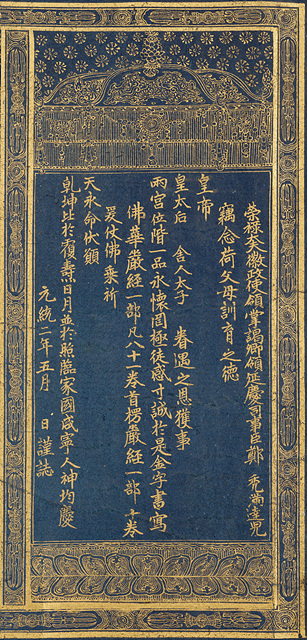 榮祿大夫徽政使領掌謁卿領延慶司事臣鄭 禿滿達兒
竊念荷父母訓育之德
皇帝
皇太后 舍人太子 眷遇之恩獲事
兩宮位階一品永懷罔極徒感寸誠於是金字書寫
佛華嚴經一部凡八十一卷首楞嚴經一部十卷
爰仗佛乘祈
天永命伏願
乾坤比於覆燾日月並於照臨家國咸寧人神均慶
元統二年五月 日 謹誌